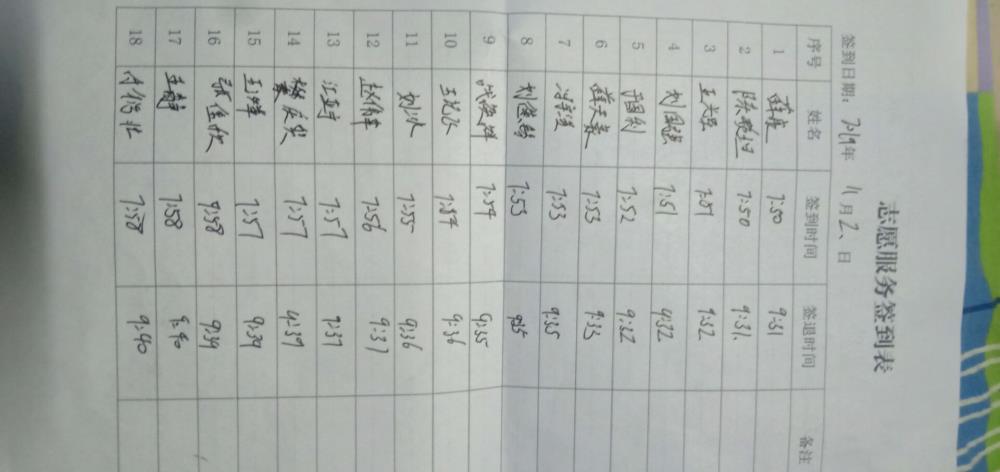 志愿服务签到表
签到日期: 2019年 11月2、日
序号 姓名 签到时间 签退时间 备注
1 薛虎 7:50 9:31
2 陈艳旭 7:50 9:31
3 王关臣 7:51 9:32
4 刘国强 7:51 9:32
5 于国利 7:52 9:32
6 薛天春 7:53 9:33
7 7:53 9:35
8 刘德裕 7:53 9:35
9 7:54 9:35
10 王龙飞 7:54 9:36
11 刘冰 7:55 9:36
12 赵伟宇 7:56 9:37
13 江亚宁 7:57 9:37
14 7:57 9:39
15 王峰 7:57 9:39
16 张佳秋 7:58 9:39
17 王静 7:58 9:40
18 7:58 9:40